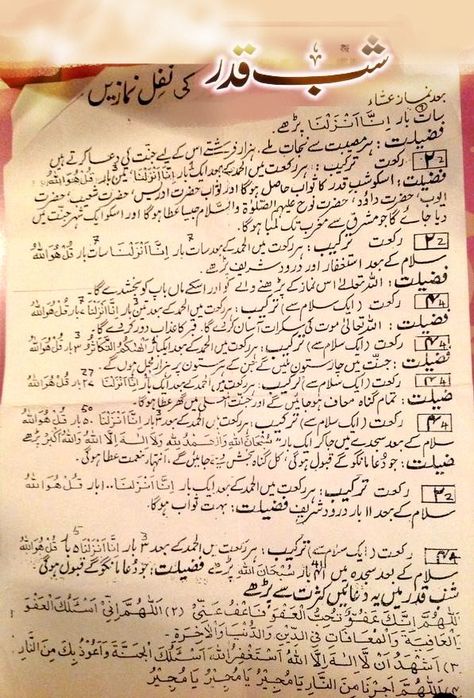 شبِ قدر کی نفل نمازیں
بعد نماز عشاء
سات بار اِنَّا اَنْزَلْنَا پڑھے۔
فضیلت: ہر مصیبت سے نجات ملے، ہزار فرشتے اس کے لیے جنت کی دعا کرتے ہیں
2 ۲ رکعت ترکیب: ہر رکعت میں الحمد کے بعد ایک بار اِنَّا اَنْزَلْنَا، تین بار قُلْ هُوَ اللّٰهُ
فضیلت: اسکو شب قدر کا ثواب حاصل ہوگا اور ثواب حضرت ادریس، حضرت شعیب، حضرت
ایوب، حضرت داؤد، حضرت نوح علیہم الصلوٰۃ والسلام جیسا عطا ہوگا اور اسکو ایک شہر جنت میں
دیا جائے گا جو مشرق سے مغرب تک لمبا ہوگا۔
2 ۲ رکعت ترکیب: ہر رکعت میں الحمد کے بعد سات بار اِنَّا اَنْزَلْنَا سات بار قُلْ هُوَ اللّٰهُ
سلام کے بعد استغفار اور درود شریف پڑھے۔
فضیلت: اللہ تعالیٰ اس نماز کے پڑھنے والے کو اور اسکے ماں باپ کو بخش دے گا۔
4 ۴ رکعت (ایک سلام سے) ترکیب: ہر رکعت میں الحمد کے بعد تین بار اِنَّا اَنْزَلْنَا بار قُلْ هُوَ اللّٰهُ
فضیلت: اللہ تعالیٰ موت کی سکرات آسان کرے گا۔ قبر کا عذاب دور کرے گا
4 ۴ رکعت (ایک سلام سے) ترکیب: ہر رکعت میں الحمد کے بعد ایک بار اَلْهٰكُمُ التَّكَاثُرُ 3 بار قُلْ هُوَ اللّٰهُ
فضیلت: جنت میں چار ستون ملیں گے جن کے ہر ستون پر ہزار محل ہوں گے۔
4 ۴ رکعت (ایک سلام سے) ترکیب: ہر رکعت میں الحمد کے بعد ایک بار اِنَّا اَنْزَلْنَا ۲۷ 27 بار قُلْ هُوَ اللّٰهُ
فضیلت: تمام گناہ معاف ہو جائیں گے اور جنت میں گھر عطا ہوگا۔
4 ۴ رکعت (ایک سلام سے) ترکیب: ہر رکعت میں الحمد کے بعد ۳ 3 بار اِنَّا اَنْزَلْنَا ۵۰ 50 بار قُلْ هُوَ اللّٰهُ
سلام کے بعد سجدے میں جا کر ایک بار سُبْحَانَ اللّٰهِ وَالْحَمْدُ لِلّٰهِ وَلَا اِلٰهَ اِلَّا اللّٰهُ وَاللّٰهُ اَكْبَرُ پڑھے
فضیلت: جو دعا مانگو گے قبول ہوگی، کل گناہ بخش دیئے جائیں گے، انتہا نعمت عطا ہوگی۔
2 ۲ رکعت ترکیب: ہر رکعت میں الحمد کے بعد ایک بار اِنَّا اَنْزَلْنَا بار قُلْ هُوَ اللّٰهُ
سلام کے بعد ۱۱ بار درود شریف فضیلت: بہت ثواب ہوگا۔
رکعت (ایک سلام سے) ترکیب: ہر رکعت میں الحمد کے بعد ۳ 3 بار اِنَّا اَنْزَلْنَا ۵ 5 بار قُلْ هُوَ اللّٰهُ
سلام کے بعد سجدہ میں 41 بار سُبْحَانَ اللّٰهِ پڑھے فضیلت: جو دعا مانگو گے قبول ہوگی
شب قدر میں یہ دعائیں کثرت سے پڑھے
اَللّٰهُمَّ اِنَّكَ عَفُوٌّ تُحِبُّ الْعَفْوَ فَاعْفُ عَنِّيْ (۲) اَللّٰهُمَّ اِنِّيْ اَسْئَلُكَ الْعَفْوَ
وَالْعَافِيَةَ وَالْمُعَافَاتَ فِي الدِّيْنِ وَالدُّنْيَا وَالْاٰخِرَةِ۔
۳) اَشْهَدُ اَنْ لَّا اِلٰهَ اِلَّا اللّٰهُ اَسْتَغْفِرُ اللّٰهَ اَسْئَلُكَ الْجَنَّةَ وَاَعُوْذُ بِكَ مِنَ النَّارِ
اَللّٰهُمَّ اَجِرْنَا مِنَ النَّارِ يَا مُجِيْرُ يَا مُجِيْرُ يَا مُجِيْرُ